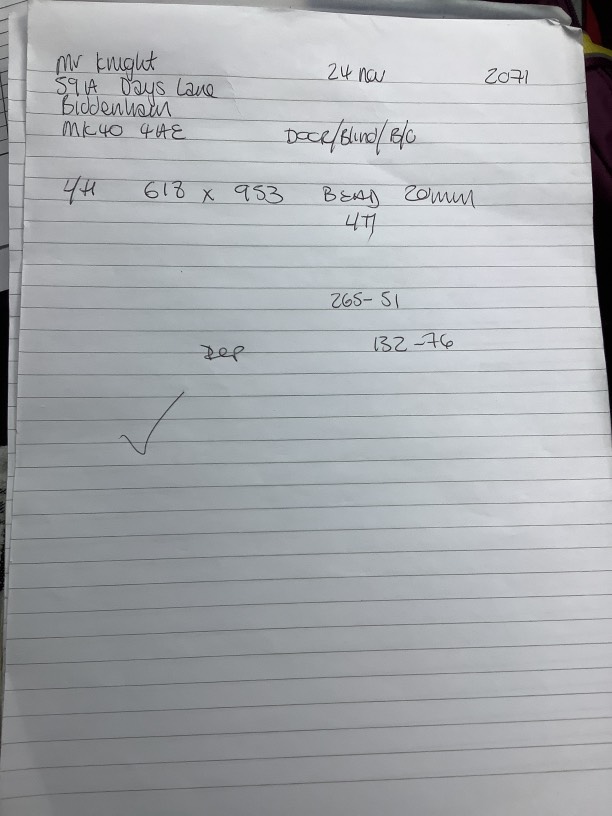 Mr Knight 24 Nov 2071
59A Days Lane
Biddenham
MK40 4AE DOOR/Blind/B/C
4/H 618 x 953 BEAD 20mm
265-51
Dep 132-76